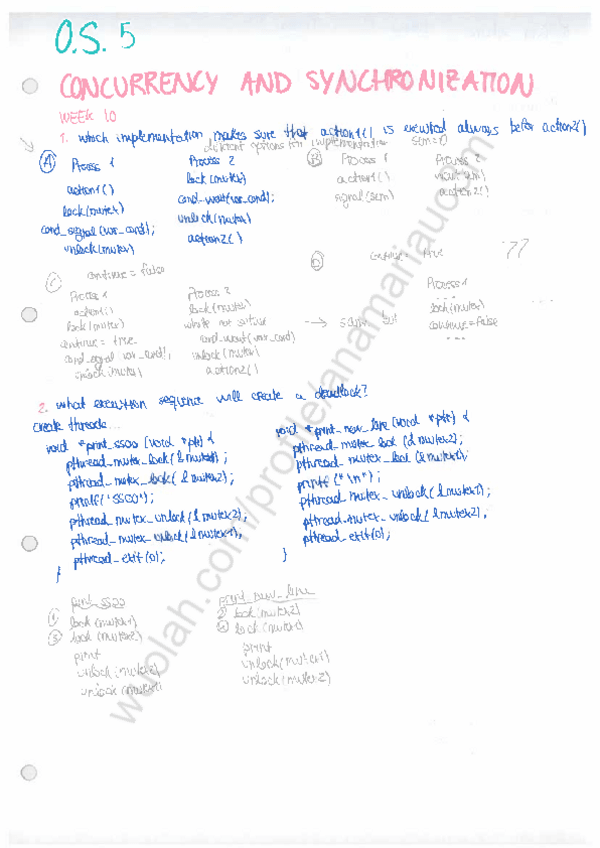 O.S. 5
CONCURRENCY AND SYNCHRONIZATION
WEEK 10
1. Which implementation makes sure that action1() is executed always befor action2()
different options for implementation sem=0
A Process 1 Process 2
action1() lock(mutex)
lock(mutex) cond_wait(var_cond);
cond_signal(var_cond); unlock(mutex)
unlock(mutex) action2()
B Process 1 Process 2
action1() wait(sem)
signal(sem) action2()
C continue = false
Process 1 Process 2
action1() lock(mutex)
lock(mutex) while not continue
continue = true. cond_wait(var_cond)
cond_signal var_cond); unlock(mutex)
unlock(mutex) action2()
D continue = true ??
Process 1
---
→ same but lock(mutex)
continue=false
---
2. what execution sequence will create a deadlock?
create threads...
void *print_ssoo (void *ptr) {
pthread_mutex_lock(&mutex1);
pthread_mutex_lock(&mutex2);
printf('SSOO');
pthread_mutex_unlock(&mutex2);
pthread_mutex_unlock(&mutex1);
pthread_exit(0);
}
void *print_new_line (void *ptr) {
pthread_mutex_lock(&mutex2);
pthread_mutex_lock(&mutex1);
printf("\n");
pthread_mutex_unlock(&mutex1);
pthread_mutex_unlock(&mutex2),
pthread_exit(0);
}
print_ssoo
1 lock(mutex1)
3 lock(mutex2)
print
unlock(mutex2)
unlock(mutex1)
print_new_line
2 lock(mutex2)
4 lock(mutex1)
print
unlock(mutex1)
unlock(mutex2)
wuolah.com/profile/anamariauc